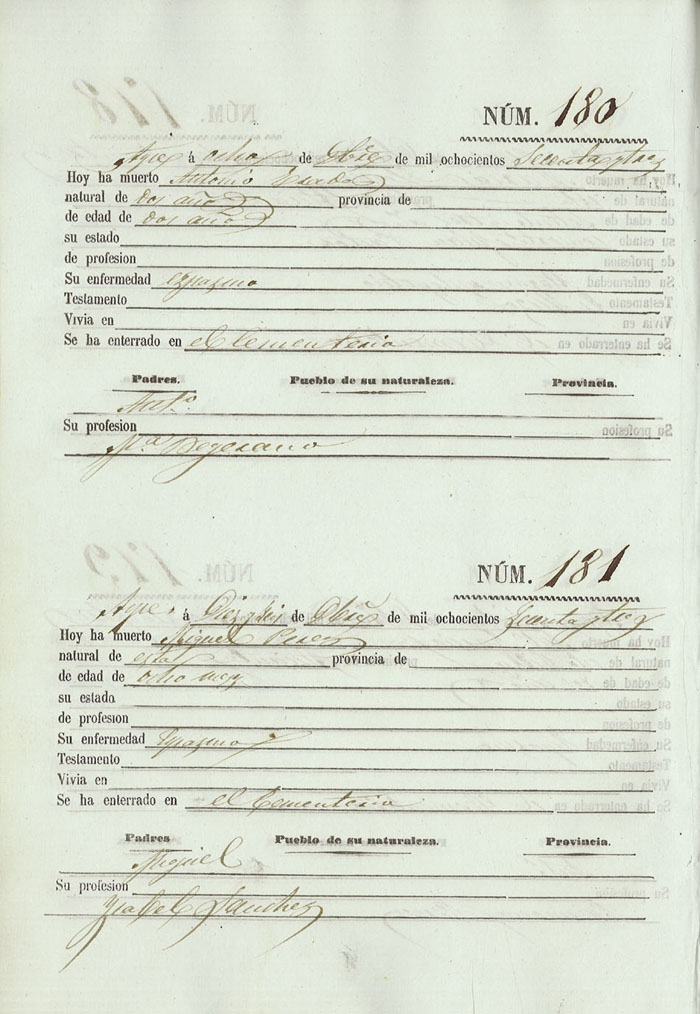 NÚM. 180
á ocho de de mil ochocientos Sesenta y tres
Hoy ha muerto Antonio
natural de dos años provincia de
de edad de dos años
su estado
de profesion
Su enfermedad espasmo
Testamento
Vivia en
Se ha enterrado en el Cementerio
Padres. Pueblo de su naturaleza. Provincia.
Ant.º
Su profesion
M.ª Begerano
NÚM. 181
á Diez y seis de de mil ochocientos Sesenta y tres
Hoy ha muerto Miguel Perez
natural de esta provincia de
de edad de ocho meses
su estado
de profesion
Su enfermedad Espasmo
Testamento
Vivia en
Se ha enterrado en el Cementerio
Padres Pueblo de su naturaleza. Provincia.
Miguel
Su profesion
Ysabel Sanchez